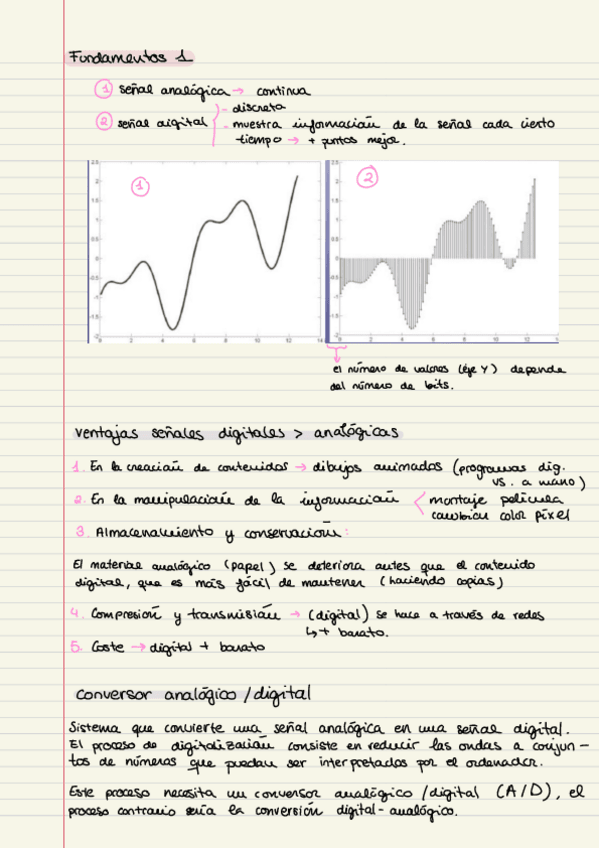 Fundamentos 1
① señal analógica → continua
② señal digital - discreta
- muestra información de la señal cada cierto
tiempo → + puntos mejor.
① ②
2.5
2
1.5
1
0.5
0
-0.5
-1
-1.5
-2
0 2 4 6 8 10 12 14
2.5
2
1.5
1
0.5
0
-0.5
-1
-1.5
-2
0 2 4 6 8 10 12
el número de valores (eje Y) depende
del número de bits.
ventajas señales digitales > analógicas
1. En la creación de contenidos → dibujos animados (programas dig.
vs. a mano)
2. En la manipulación de la información < montaje película
cambian color píxel
3. Almacenamiento y conservación:
El material analógico (papel) se deteriora antes que el contenido
digital, que es más fácil de mantener (haciendo copias)
4. Compresión y transmisión → (digital) se hace a través de redes
↳ + barato.
5. Coste → digital + barato
conversor analógico / digital
Sistema que convierte una señal analógica en una señal digital.
El proceso de digitalización consiste en reducir las ondas a conjun-
tos de números que puedan ser interpretados por el ordenador.
Este proceso necesita un conversor analógico / digital (A/D), el
proceso contrario sería la conversión digital-analógico.